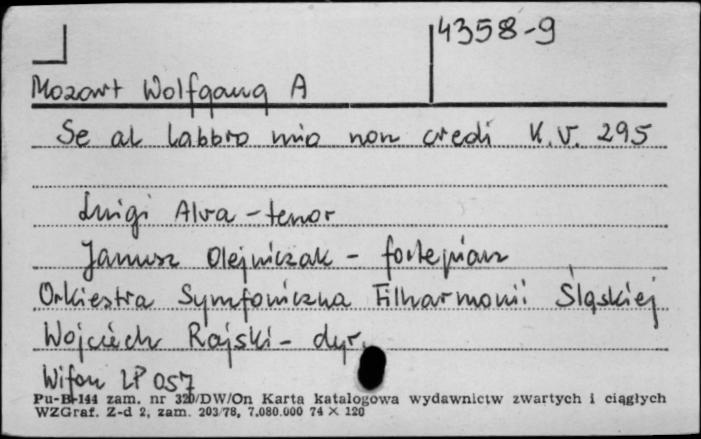 4358-9
Mozart Wolfgang A
Se al labbro mio non credi K.V. 295
Luigi Alva - tenor
Janusz Olejniczak - fortepian
Orkiestra Symfoniczna Filharmonii Śląskiej
Wojciech Rajski - dyr.
Wifon LP 057
Pu-B-144 zam. nr 320/DW/On Karta katalogowa wydawnictw zwartych i ciągłych
WZGraf. Z-d 2, zam. 203/78, 7.080.000 74 × 120